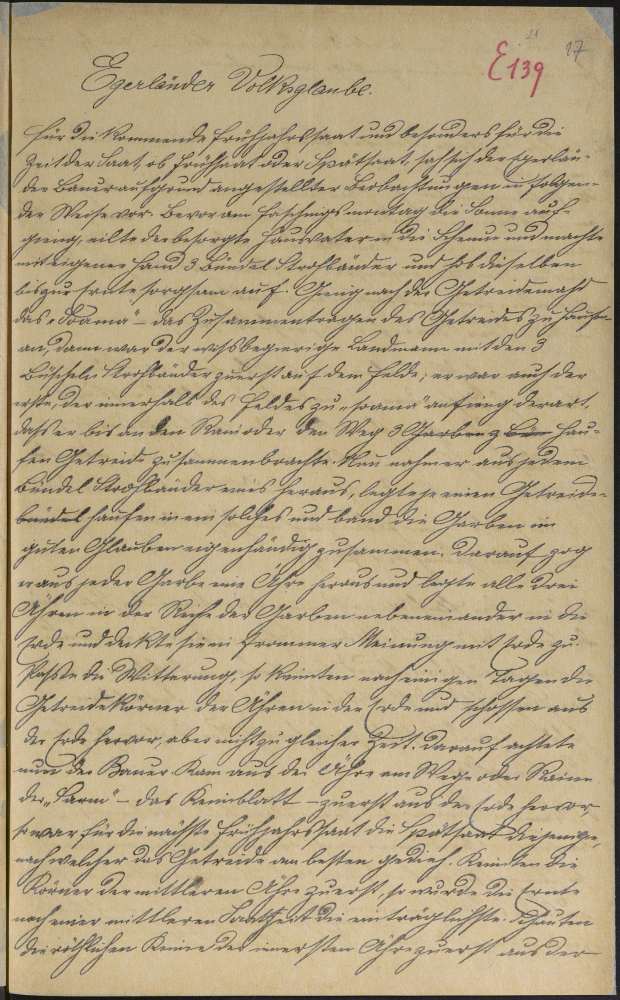 21
17
E139
Egerländer Volksglaube.
Für die kommende Frühjahrssaat und besonders für die
Zeit der Saat, ob Frühsaat oder Spätsaat, sah sich der Egerlän-
der Bauer auf Grund angestellter Beobachtungen in folgen-
der Weise vor. Bevor am Faschingsmontag die Sonne auf-
gieng, eilte der besorgte Hausvater in die Scheune und machte
mit eigener Hand 3 Bündel Strohbänder und hob dieselben
bis zur Ernte sorgsam auf. Gieng nach der Getreidemahd
das „Soama" – das Zusammentragen des Getreides zu Haufen
an, dann war der wissbegierige Landmann mit den 3
Büscheln Strohbänder zuerst auf dem Felde; er war auch der
erste, der innerhalb des Feldes zu „soama" anfieng derart,
dass er bis an den Rain oder den Weg 3 Garben z Hau-
fen Getreide zusammenbrachte. Nun nahm er aus jedem
Bündel Strohbänder eines heraus, legte je einen Getreide-
bündel haufen in ein solches und band die Garben im
guten Glauben eigenhändig zusammen. Darauf zog
er aus jeder Garbe eine Ähre heraus und legte alle drei
Ähren in der Reihe der Garben nebeneinander in die
Erde und deckte sie in frommer Meinung mit Erde zu.
Passte die Witterung, so keimten nach einigen Tagen die
Getreidekörner der Ähren in der Erde und schossen aus
der Erde hervor, aber nicht zu gleicher Zeit. Darauf achtete
nun der Bauer. Kam aus der Ähre am Wege oder Raine
der – das Keimblatt – zuerst aus der Erde hervor,
so war für die nächste Frühjahrssaat die Spätsaat diejenige,
nach welcher das Getreide am besten gedieh. Keimten die
Körner der mittleren Ähre zuerst, so wurde die Ernte
nach einer mittleren Saatzeit die einträglichste. Schauten
die röthlichen Keime der innersten Ähre zuerst aus der